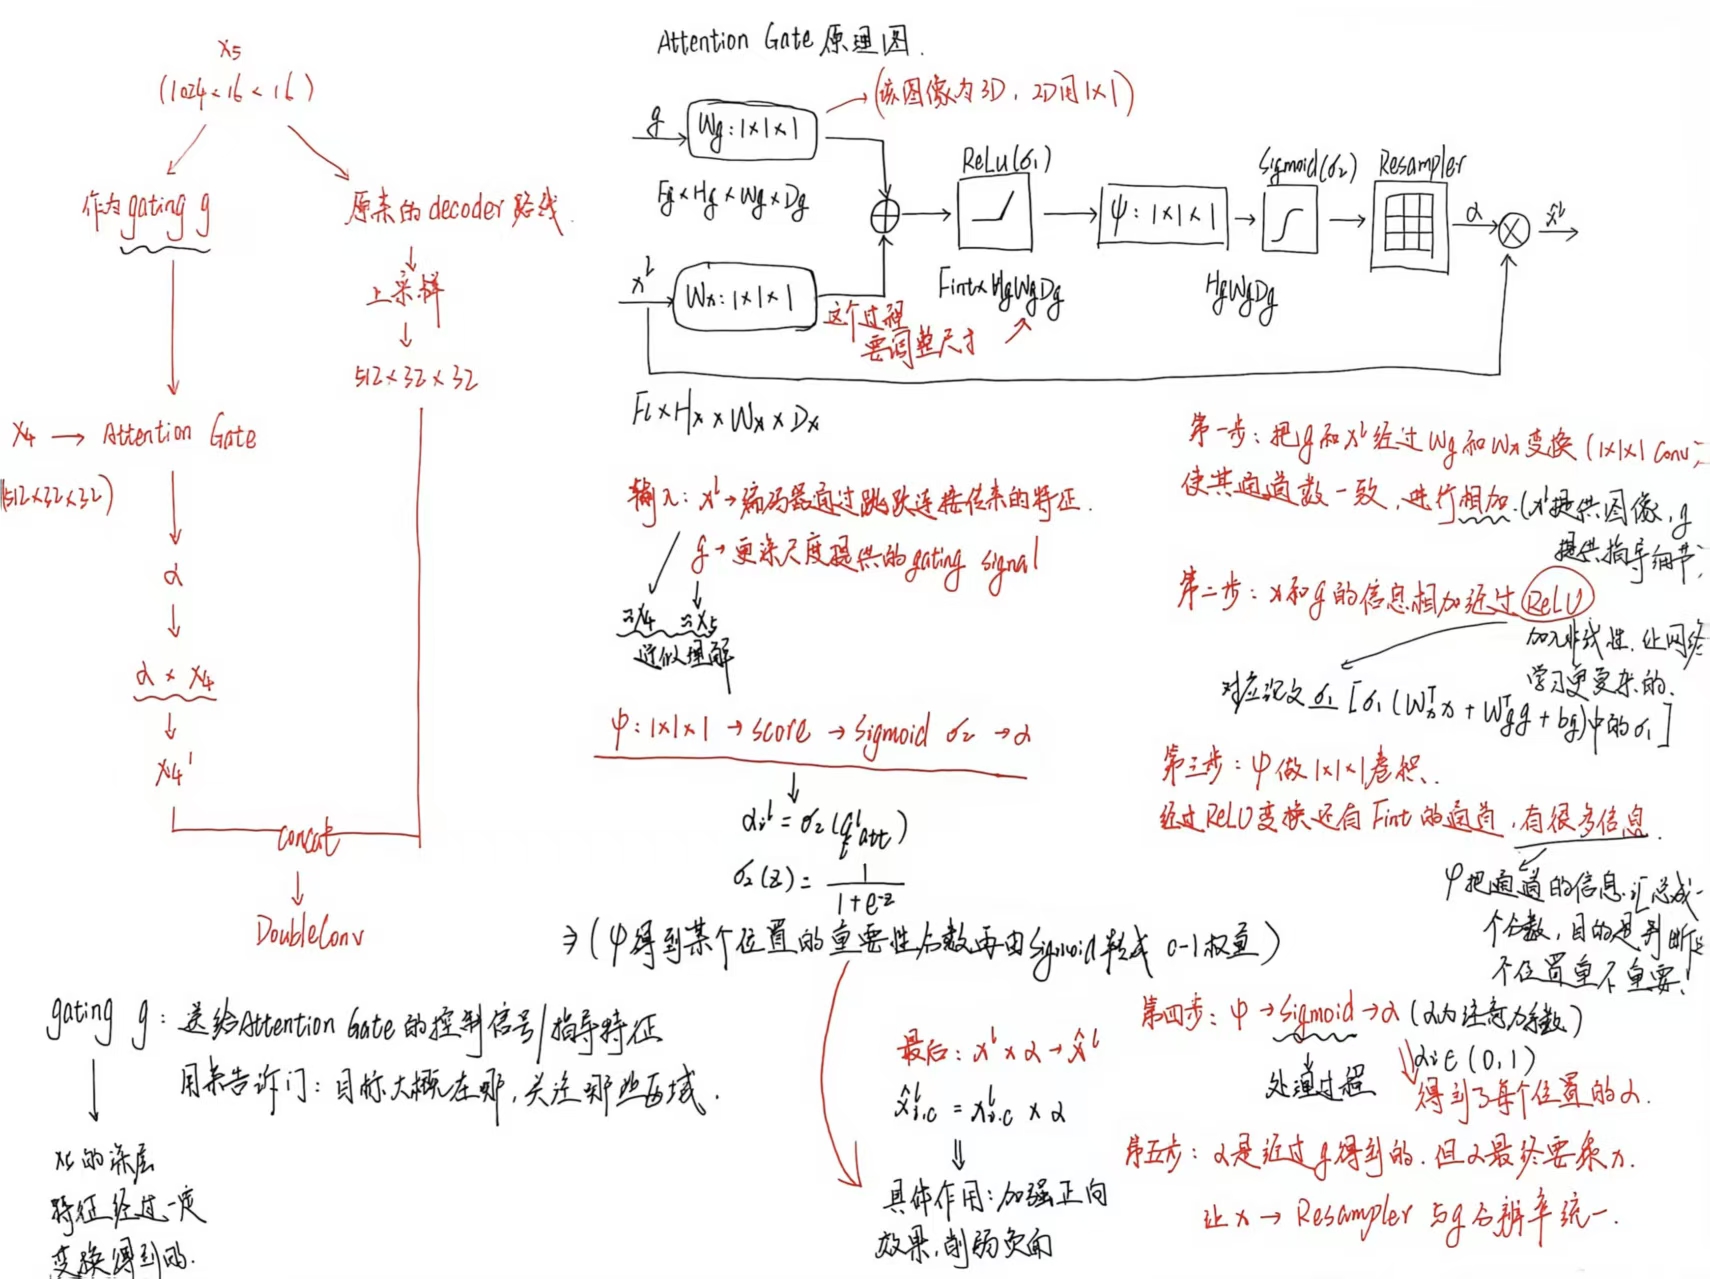 Attention Gate 原理图.
x5
(1024×16×16)
作为gating g
原来的decoder路线.
上采样
512×32×32
x4 → Attention Gate
(512×32×32)
α
α × x4
x4'
concat
DoubleConv
gating g: 送给Attention Gate的控制信号/指导特征
用来告诉门: 目标大概在哪, 关注那些区域.
x5的深层
特征经过一定
变换得到的.
(该图像为3D, 2D用1×1)
g
Wg: 1×1×1
Fg×Hg×Wg×Dg
ReLu(σ1)
Sigmoid(σ2)
Resampler
ψ: 1×1×1
α
x̂^l
x^l
Wx: 1×1×1
这个过程
要调整尺寸
Fint×HgWgDg
HgWgDg
Fl×Hx×Wx×Dx
输入: x^l→编码器通过跳跃连接传来的特征.
g→更深尺度提供的gating signal
≈x4 ≈x5
近似理解
ψ: 1×1×1 → score → Sigmoid σ2 → α
αi^l = σ2(q^l att)
σ2(z) = 1/(1+e^-z)
⇒(ψ得到某个位置的重要性分数再由Sigmoid转成 0-1权重)
最后: x^l × α → x̂^l
x̂^l i,c = x^l i,c × α
具体作用: 加强正向
效果, 削弱负面
第一步: 把g和x^l经过Wg和Wx变换(1×1×1 Conv)
使其通道数一致, 进行相加.(x^l提供图像, g
提供指导细节)
第二步: x和g的信息相加经过ReLU
加入非线性, 让网络
学习更复杂的.
对应论文σ1 [σ1(Wx^T x + Wg^T g + bg)中的σ1]
第三步: ψ做1×1×1卷积.
经过ReLU变换还有Fint的通道, 有很多信息.
ψ把通道的信息汇总成一
个分数, 目的是判断
个位置重不重要!
第四步: ψ→Sigmoid→α (α为注意力系数)
αi∈(0,1)
处理过程
得到了每个位置的α.
第五步: α是经过g得到的. 但α最终要乘x.
让x → Resampler 与g分辨率统一.